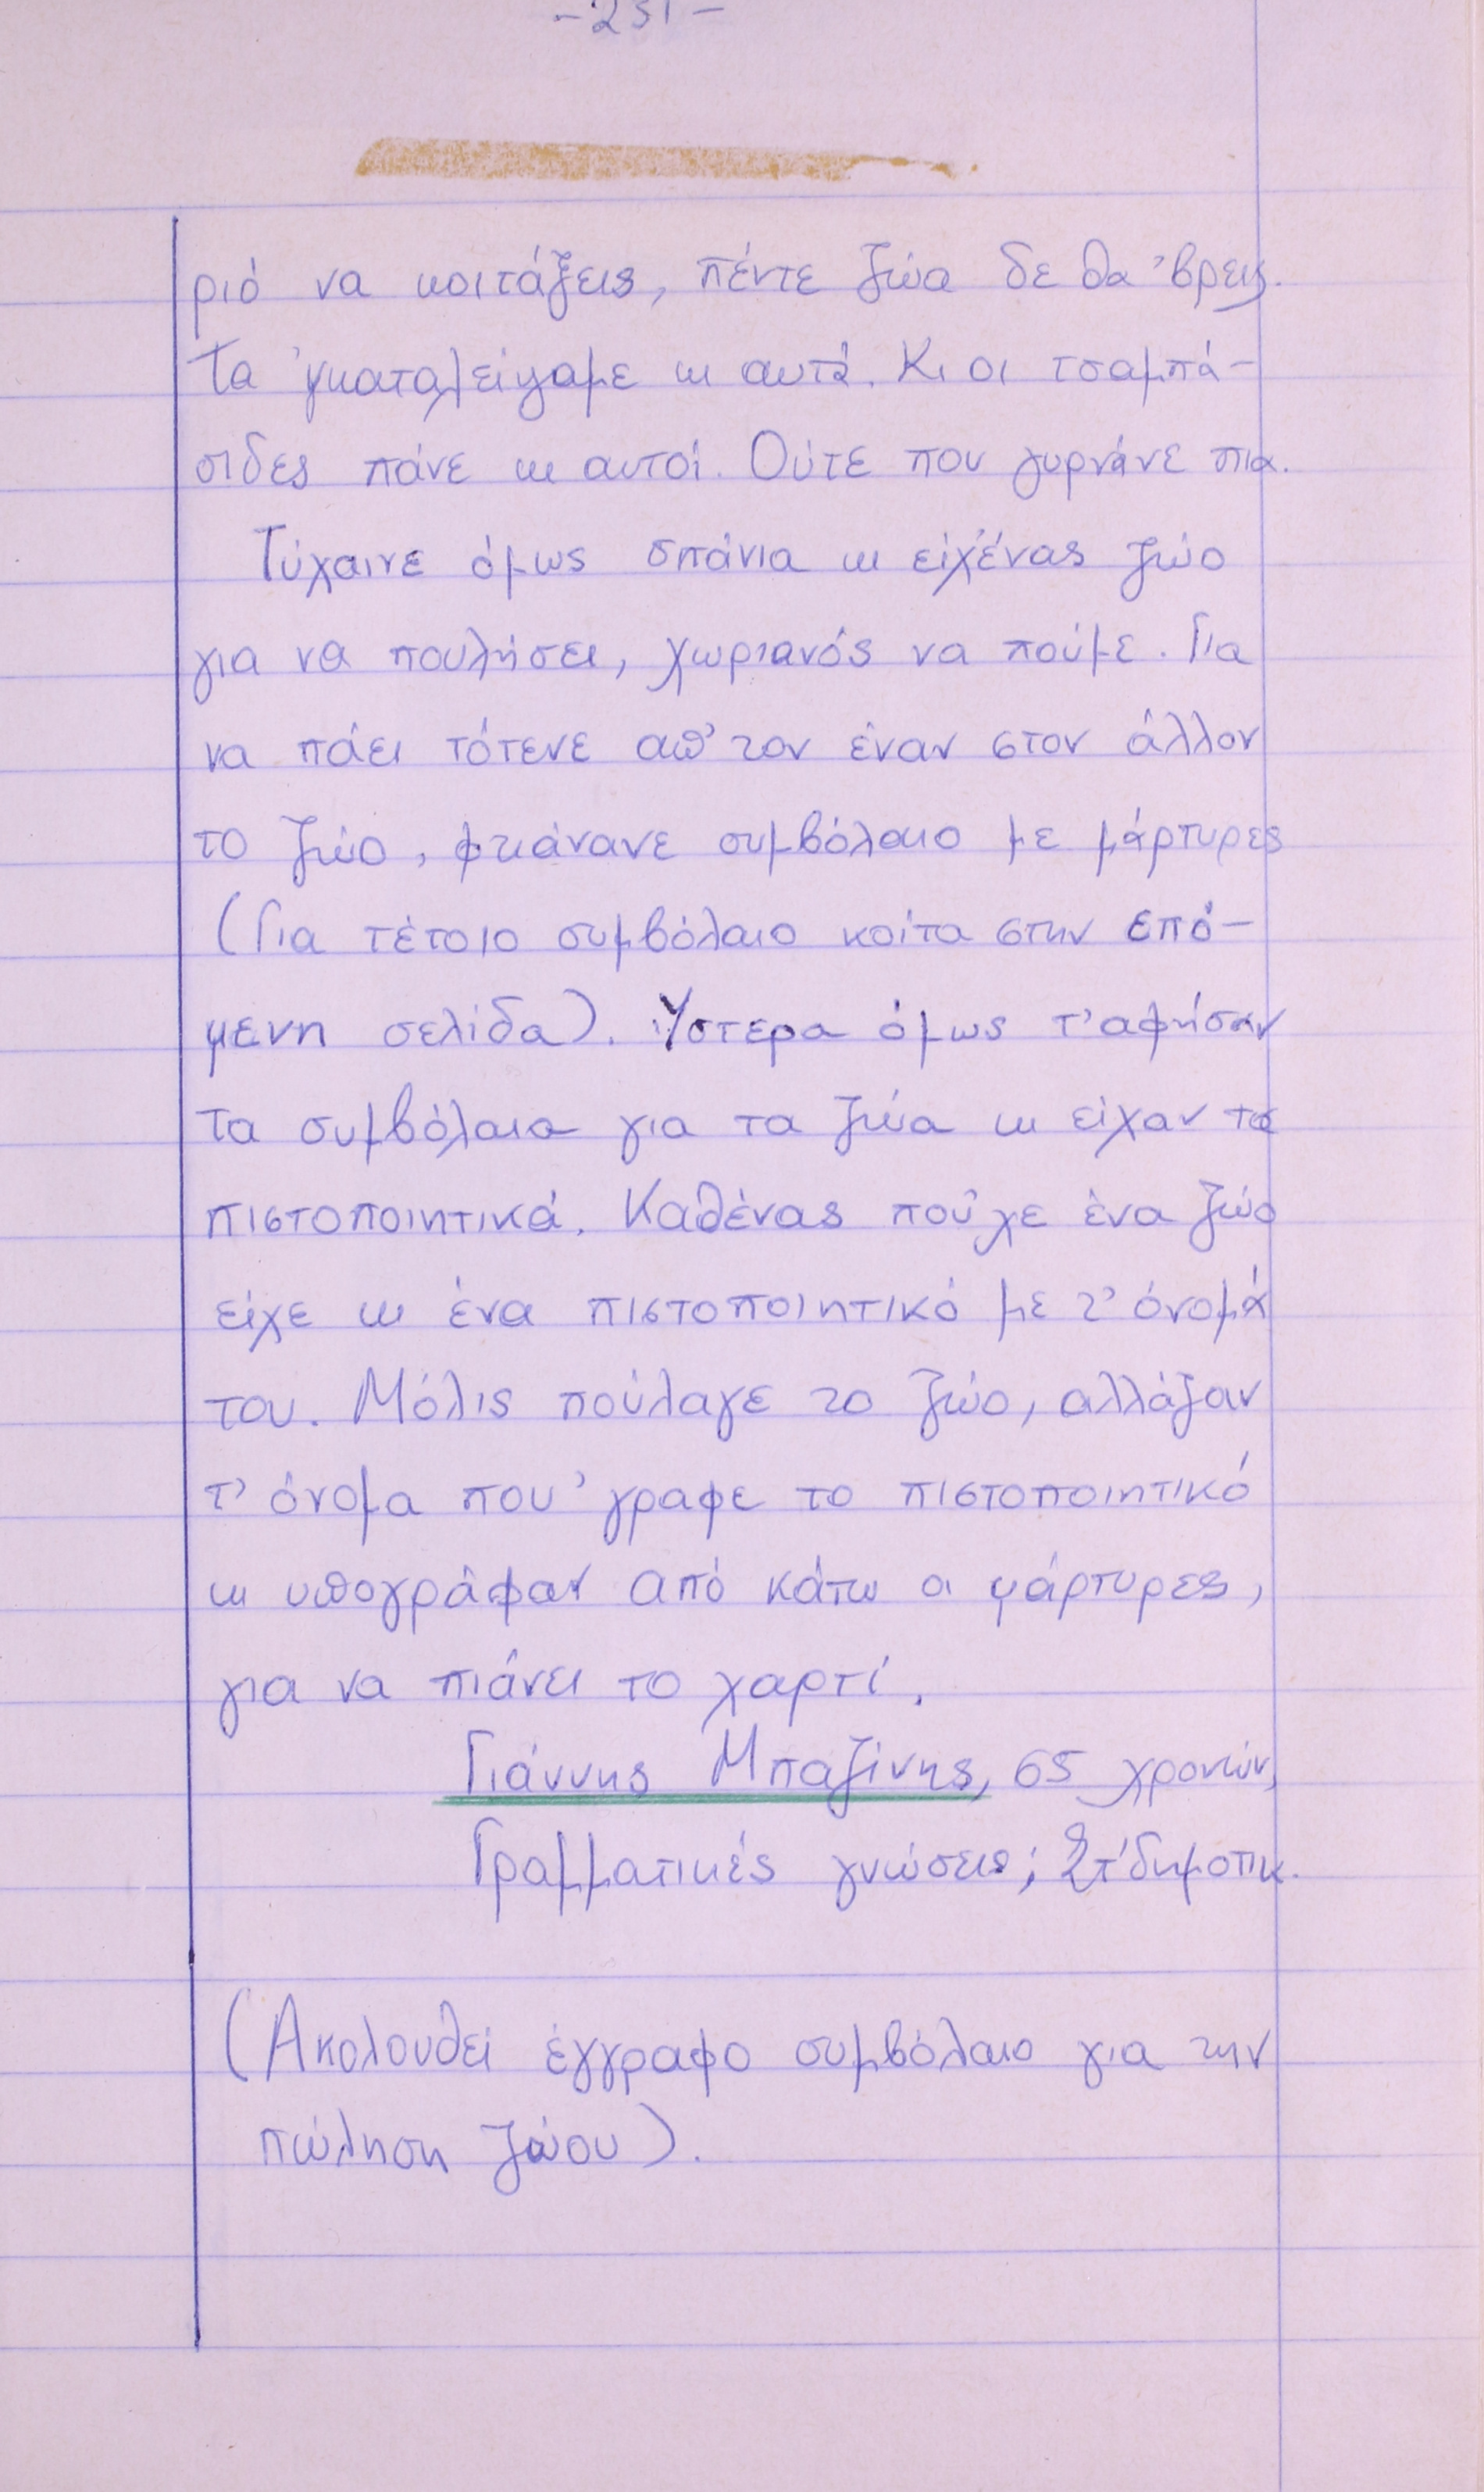 -251-
ριό να κοιτάξεις, πέντε ζώα δε θα 'βρεις.
Τα 'γκαταλείψαμε κι αυτά. Κι οι τσαμπά-
σιδες πάνε κι αυτοί. Ούτε που γυρνάνε πια.
Τύχαινε όμως σπάνια κι είχ' ένας ζώο
για να πουλήσει, χωριανός να πούμε. Για
να πάει τότενε απ' τον έναν στον άλλον
το ζώο, φκιάνανε συμβόλαιο με μάρτυρες
(Για τέτοιο συμβόλαιο κοίτα στην επό-
μενη σελίδα). Ύστερα όμως τ' αφήσαν
τα συμβόλαια για τα ζώα κι είχαν τα
πιστοποιητικά. Καθένας πού'χε ένα ζώο
είχε κι ένα πιστοποιητικό με τ' όνομά
του. Μόλις πούλαγε το ζώο, αλλάζαν
τ' όνομα που 'γραφε το πιστοποιητικό
κι υπογράφαν από κάτω οι μάρτυρες,
για να πιάνει το χαρτί.
Γιάννης Μπαζίνης, 65 χρονών,
Γραμματικές γνώσεις; Στ' δημοτικ.
(Ακολουθεί έγγραφο συμβόλαιο για την
πώληση ζώου).